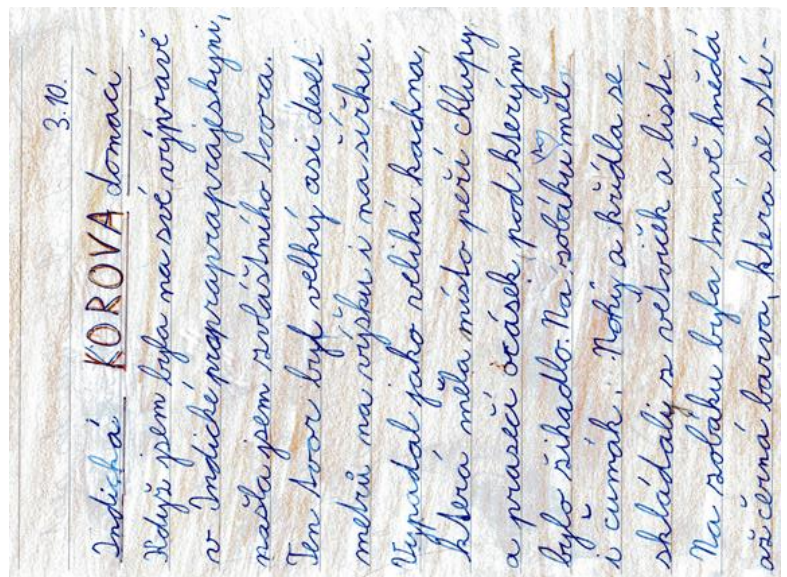 3.10.
Indická KOROVA domací
Když jsem byla na své výpravě
v Indické praprapraprajeskyni,
našla jsem zvláštního tvora.
Ten tvor byl velký asi deset
metrů na výšku i na šířku.
Vypadal jako veliká kachna,
která měla místo peří chlupy
a prasečí ocásek pod kterým
bylo žihadlo. Na zobáku měl
i čumák. Nohy a křídla se
skládaly z větviček a listí.
Na zobáku byla tmavě hnědá
až černá barva, která se stí-